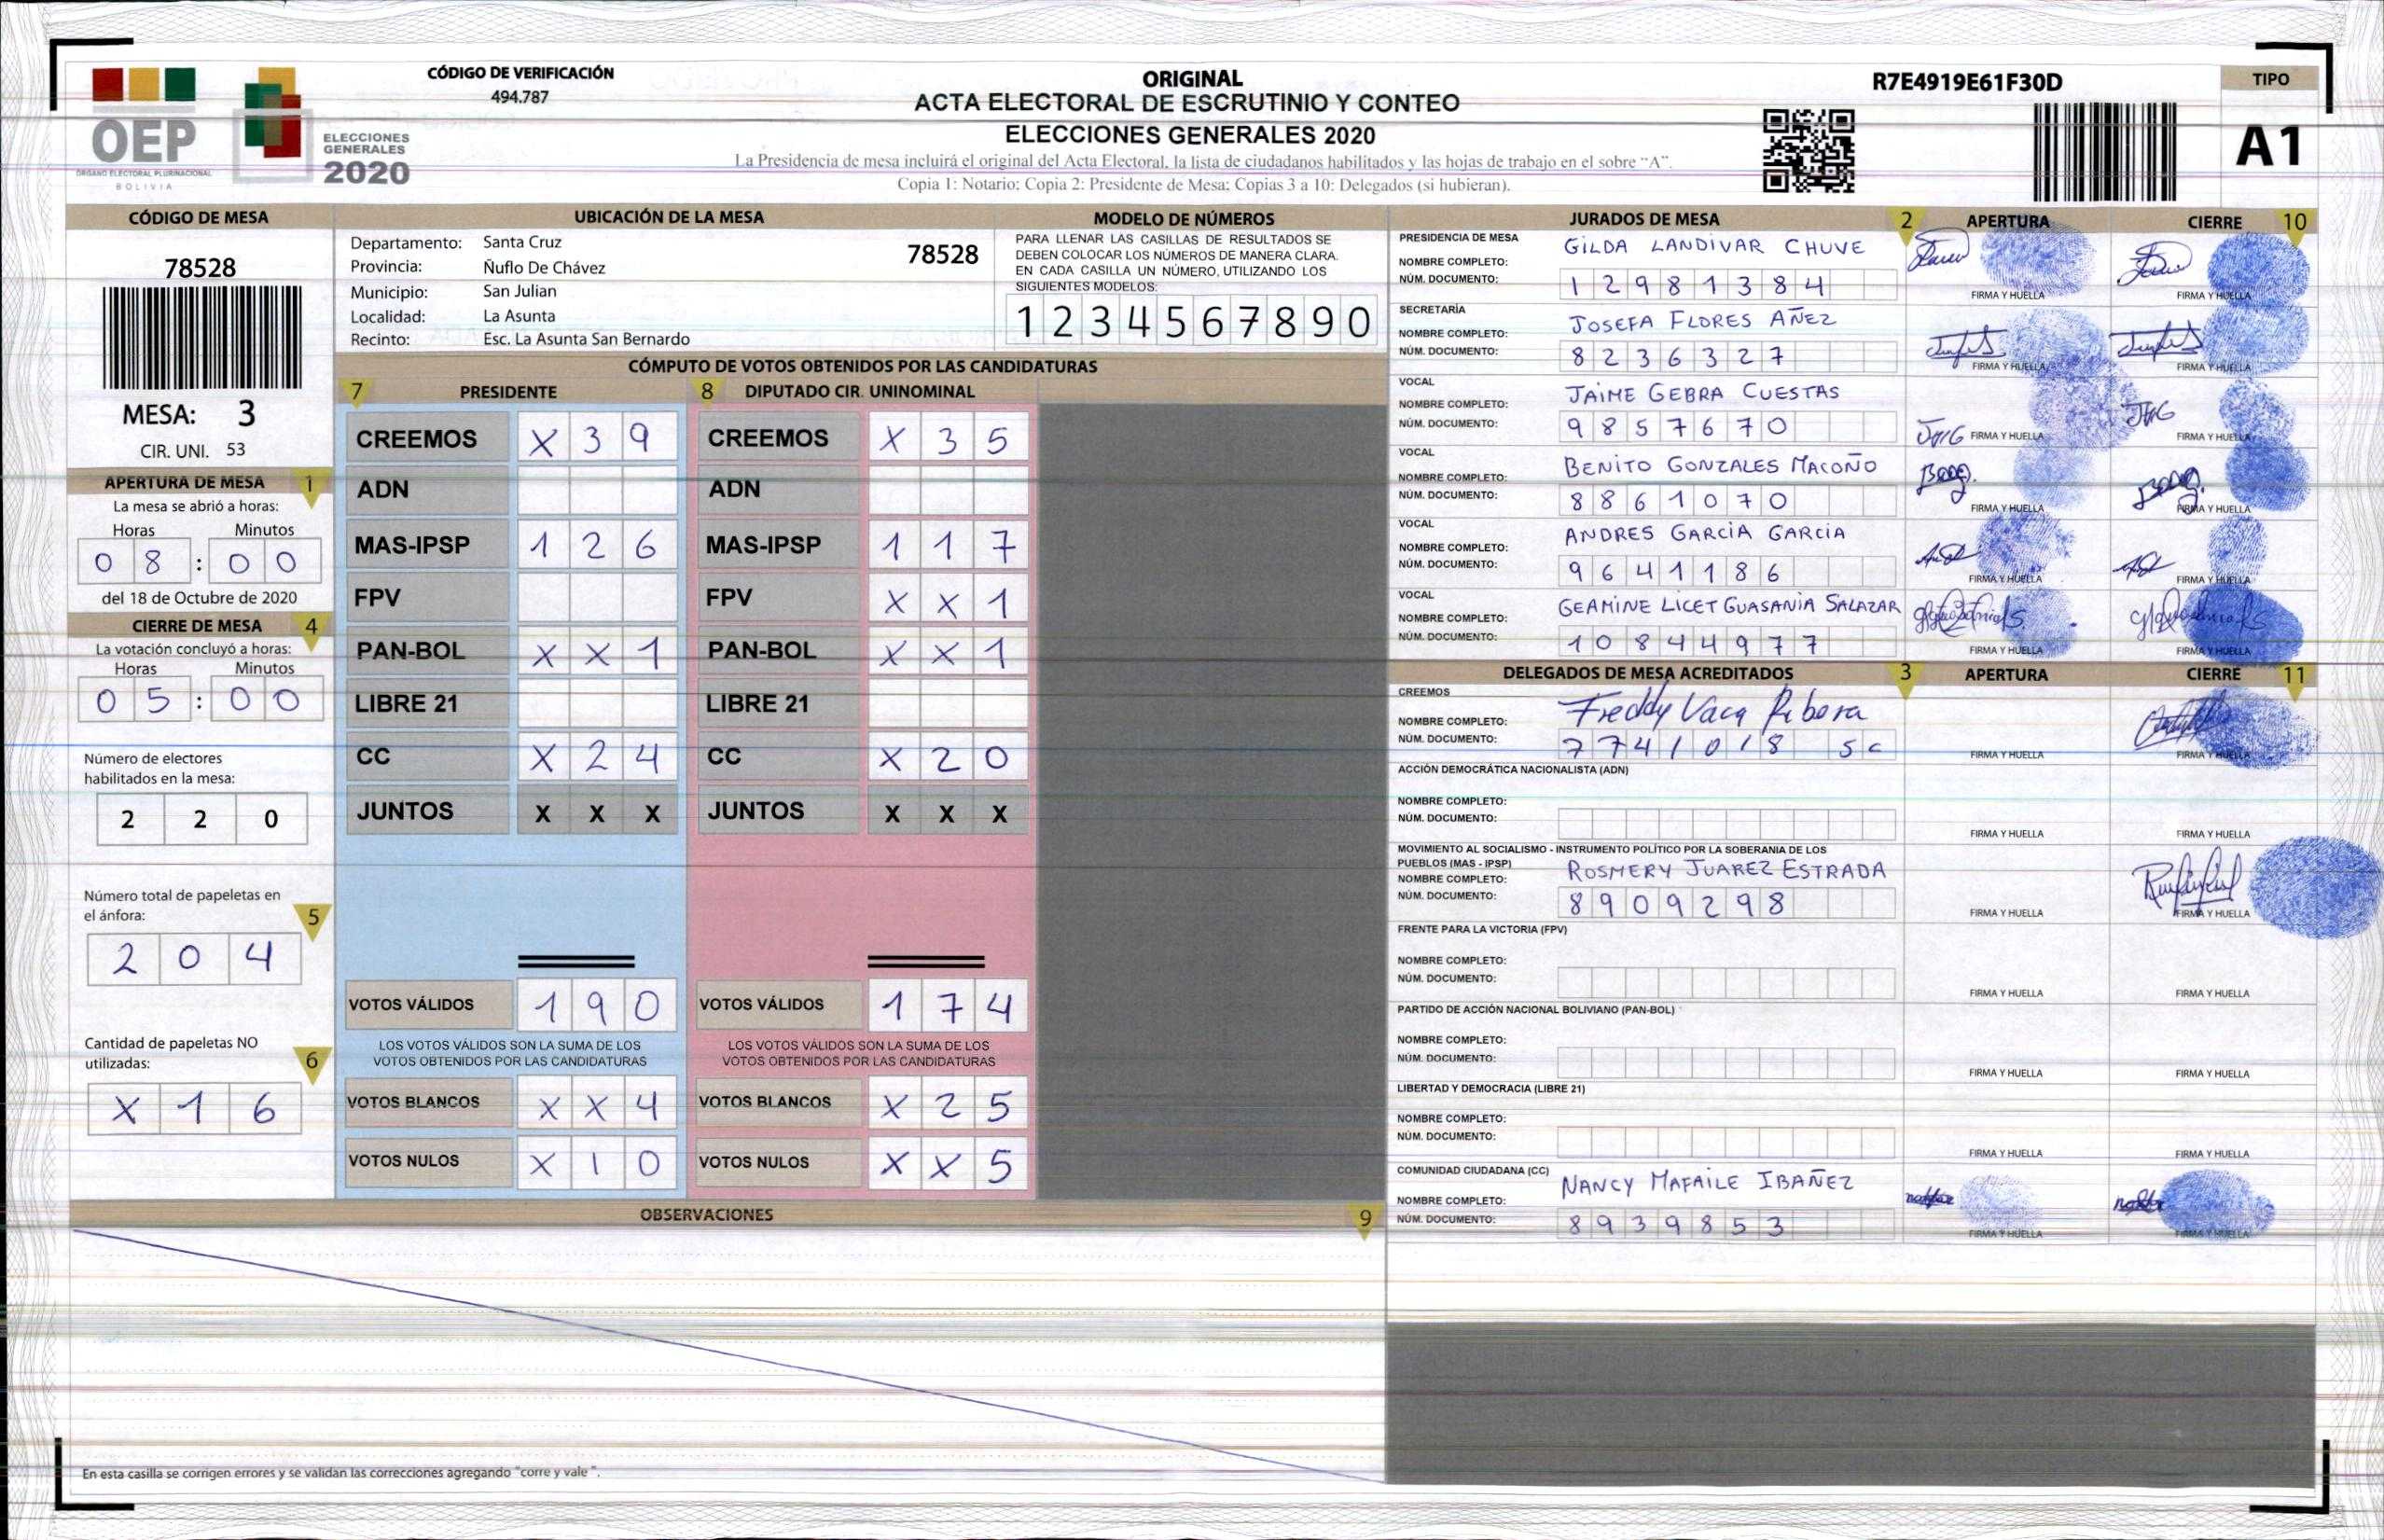 CÓDIGO DE VERIFICACIÓN
494.787
ORIGINAL
ACTA ELECTORAL DE ESCRUTINIO Y CONTEO
ELECCIONES GENERALES 2020
La Presidencia de mesa incluirá el original del Acta Electoral, la lista de ciudadanos habilitados y las hojas de trabajo en el sobre "A".
Copia 1: Notario; Copia 2: Presidente de Mesa; Copias 3 a 10: Delegados (si hubieran).
R7E4919E61F30D
TIPO
A1
OEP
ÓRGANO ELECTORAL PLURINACIONAL
BOLIVIA
ELECCIONES
GENERALES
2020
CÓDIGO DE MESA
78528
MESA: 3
CIR. UNI. 53
APERTURA DE MESA 1
La mesa se abrió a horas:
Horas Minutos
0 8 : 0 0
del 18 de Octubre de 2020
CIERRE DE MESA 4
La votación concluyó a horas:
Horas Minutos
0 5 : 0 0
Número de electores
habilitados en la mesa:
2 2 0
Número total de papeletas en
el ánfora: 5
2 0 4
Cantidad de papeletas NO
utilizadas: 6
X 1 6
UBICACIÓN DE LA MESA
Departamento: Santa Cruz 78528
Provincia: Ñuflo De Chávez
Municipio: San Julian
Localidad: La Asunta
Recinto: Esc. La Asunta San Bernardo
MODELO DE NÚMEROS
PARA LLENAR LAS CASILLAS DE RESULTADOS SE
DEBEN COLOCAR LOS NÚMEROS DE MANERA CLARA.
EN CADA CASILLA UN NÚMERO, UTILIZANDO LOS
SIGUIENTES MODELOS:
1 2 3 4 5 6 7 8 9 0
CÓMPUTO DE VOTOS OBTENIDOS POR LAS CANDIDATURAS
7 PRESIDENTE 8 DIPUTADO CIR. UNINOMINAL
CREEMOS X 3 9 CREEMOS X 3 5
ADN ADN
MAS-IPSP 1 2 6 MAS-IPSP 1 1 7
FPV FPV X X 1
PAN-BOL X X 1 PAN-BOL X X 1
LIBRE 21 LIBRE 21
CC X 2 4 CC X 2 0
JUNTOS X X X JUNTOS X X X
VOTOS VÁLIDOS 1 9 0 VOTOS VÁLIDOS 1 7 4
LOS VOTOS VÁLIDOS SON LA SUMA DE LOS LOS VOTOS VÁLIDOS SON LA SUMA DE LOS
VOTOS OBTENIDOS POR LAS CANDIDATURAS VOTOS OBTENIDOS POR LAS CANDIDATURAS
VOTOS BLANCOS X X 4 VOTOS BLANCOS X 2 5
VOTOS NULOS X 1 0 VOTOS NULOS X X 5
OBSERVACIONES 9
En esta casilla se corrigen errores y se validan las correcciones agregando "corre y vale ".
JURADOS DE MESA 2 APERTURA CIERRE 10
PRESIDENCIA DE MESA
NOMBRE COMPLETO: GILDA LANDIVAR CHUVE
NÚM. DOCUMENTO: 1 2 9 8 1 3 8 4
FIRMA Y HUELLA FIRMA Y HUELLA
SECRETARÍA
NOMBRE COMPLETO: JOSEFA FLORES AÑEZ
NÚM. DOCUMENTO: 8 2 3 6 3 2 7
FIRMA Y HUELLA FIRMA Y HUELLA
VOCAL
NOMBRE COMPLETO: JAIME GEBRA CUESTAS
NÚM. DOCUMENTO: 9 8 5 7 6 7 0
FIRMA Y HUELLA FIRMA Y HUELLA
VOCAL
NOMBRE COMPLETO: BENITO GONZALES MACOÑO
NÚM. DOCUMENTO: 8 8 6 1 0 7 0
FIRMA Y HUELLA FIRMA Y HUELLA
VOCAL
NOMBRE COMPLETO: ANDRES GARCIA GARCIA
NÚM. DOCUMENTO: 9 6 4 1 1 8 6
FIRMA Y HUELLA FIRMA Y HUELLA
VOCAL
NOMBRE COMPLETO: GEAMINE LICET GUASANIA SALAZAR
NÚM. DOCUMENTO: 1 0 8 4 4 9 7 7
FIRMA Y HUELLA FIRMA Y HUELLA
DELEGADOS DE MESA ACREDITADOS 3 APERTURA CIERRE 11
CREEMOS
NOMBRE COMPLETO: Freddy Vaca Ribera
NÚM. DOCUMENTO: 7 7 4 1 0 1 8 S C
FIRMA Y HUELLA FIRMA Y HUELLA
ACCIÓN DEMOCRÁTICA NACIONALISTA (ADN)
NOMBRE COMPLETO:
NÚM. DOCUMENTO:
FIRMA Y HUELLA FIRMA Y HUELLA
MOVIMIENTO AL SOCIALISMO - INSTRUMENTO POLÍTICO POR LA SOBERANIA DE LOS
PUEBLOS (MAS - IPSP)
NOMBRE COMPLETO: ROSMERY JUAREZ ESTRADA
NÚM. DOCUMENTO: 8 9 0 9 2 9 8
FIRMA Y HUELLA FIRMA Y HUELLA
FRENTE PARA LA VICTORIA (FPV)
NOMBRE COMPLETO:
NÚM. DOCUMENTO:
FIRMA Y HUELLA FIRMA Y HUELLA
PARTIDO DE ACCIÓN NACIONAL BOLIVIANO (PAN-BOL)
NOMBRE COMPLETO:
NÚM. DOCUMENTO:
FIRMA Y HUELLA FIRMA Y HUELLA
LIBERTAD Y DEMOCRACIA (LIBRE 21)
NOMBRE COMPLETO:
NÚM. DOCUMENTO:
FIRMA Y HUELLA FIRMA Y HUELLA
COMUNIDAD CIUDADANA (CC)
NOMBRE COMPLETO: NANCY MAFAILE IBAÑEZ
NÚM. DOCUMENTO: 8 9 3 9 8 5 3
FIRMA Y HUELLA FIRMA Y HUELLA